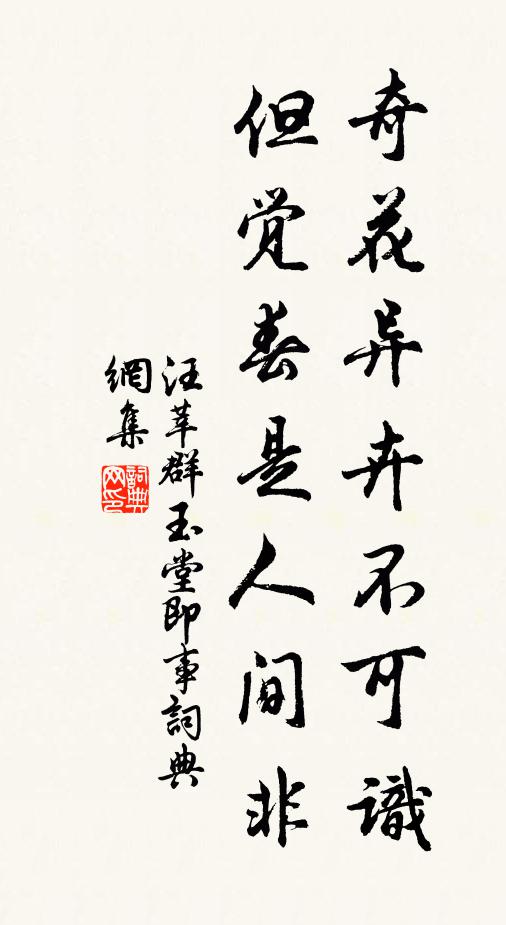 奇花异卉不可識
但觉春是人间非
汪莘群玉堂即事詞典
網集
詞典網印